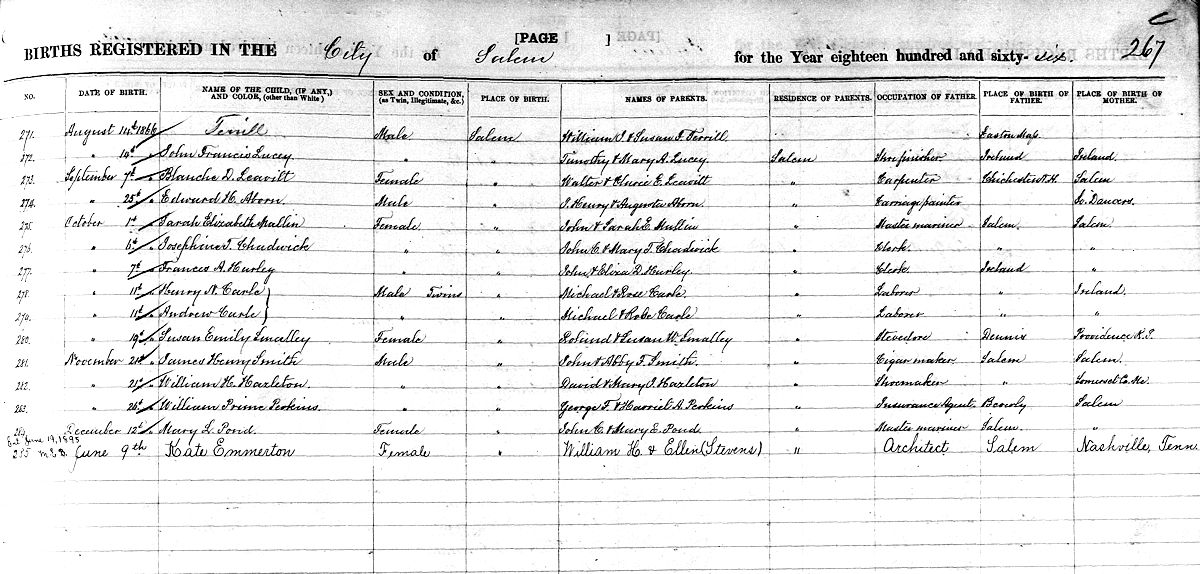 C
[PAGE ]
BIRTHS REGISTERED IN THE City of Salem for the Year eighteen hundred and sixty-six. 267
NO. DATE OF BIRTH. NAME OF THE CHILD, (IF ANY,) AND COLOR, (other than White) SEX AND CONDITION, (as Twin, Illegitimate, &c.) PLACE OF BIRTH. NAMES OF PARENTS. RESIDENCE OF PARENTS. OCCUPATION OF FATHER. PLACE OF BIRTH OF FATHER. PLACE OF BIRTH OF MOTHER.
271. August 14th 1866 Terrill Male Salem William & Susan F. Terrill Easton Mass.
272. " 14th " John Francis Lucey " " Timothy & Mary A. Lucey Salem Shoe finisher Ireland Ireland
273. September 7th " Blanche D. Leavitt Female " Walter & E. Leavitt " Carpenter Chichester N.H. Salem
274. " 25th " Edward H. Aborn Male " J. Henry & Augusta Aborn " Carriage painter So. Danvers.
275. October 1st " Sarah Elizabeth Mullin Female " John & Sarah E. Mullin " Master mariner Salem Salem
276. " 6th " Josephine T. Chadwick " " John C. & Mary T. Chadwick " Clerk " "
277. " 7th " Frances A. Hurley " " John & Eliza D. Hurley. " Clerk Ireland "
278. " 11th " Henry N. Carle Male Twins " Michael & Rose Carle " Laborer " Ireland
279. " 11th " Andrew Carle " " Michael & Rose Carle " Laborer " "
280. " 19th " Susan Emily Smalley Female " Roland & Susan W. Smalley " Stevedore Dennis Providence R.I.
281. November 21st " James Henry Smith Male " John & Abby F. Smith " Cigar maker Salem Salem
282. " 21st " William H. Hazleton. " " David & Mary J. Hazleton " Shoemaker " Somerset Co. Me.
283. " 26th " William Prime Perkins. " " George F. & Harriet A. Perkins " Insurance Agent, Beverly Salem
284. December 12th " Mary L. Pond. Female " John C. & Mary E. Pond " Master mariner Salem. "
Ent. June 19, 1895
285 M.E.B. June 9th Kate Emmerton Female William H. & Ellen (Stevens) " Architect Salem Nashville, Tenn